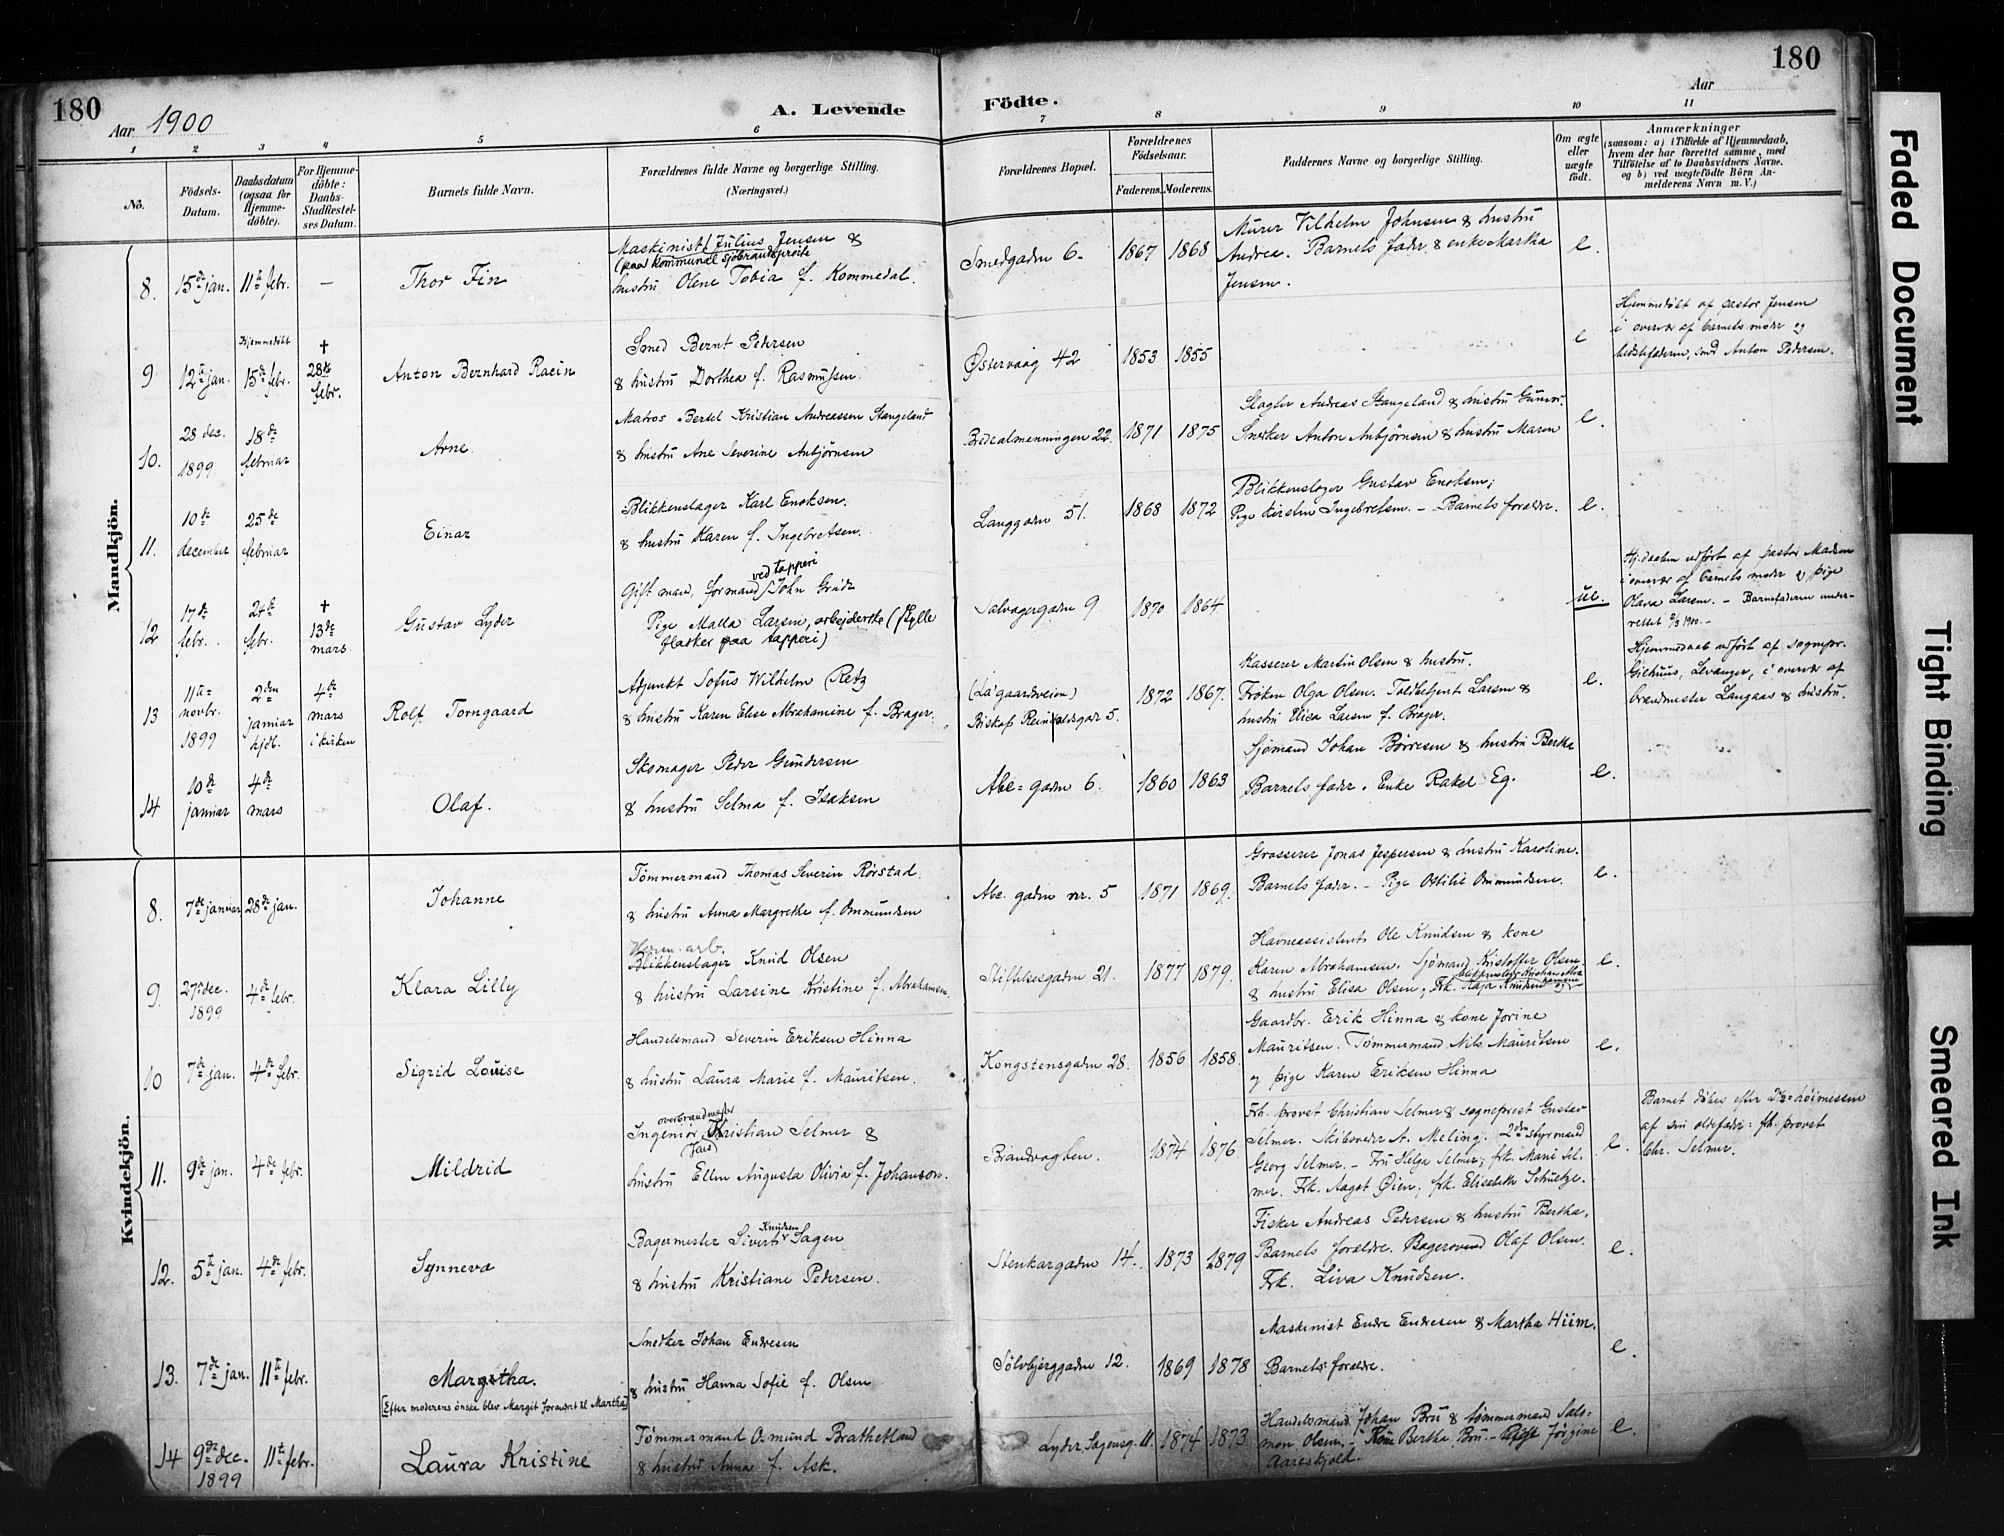 180
Aar 1900
A. Levende
Födte.
Aar
180
1 2 3 4 5 6 7 8 9 10 11
No.
Födsels-
Datum.
Daabsdatum
(ogsaa for
Hjemme-
döbte).
For Hjemme-
döbte:
Daabs-
Stadfæstel-
ses Datum.
Barnets fulde Navn.
Forældrenes fulde Navne og borgerlige Stilling.
(Næringsvei.)
Forældrenes Bopæl.
Forældrenes
Födselsaar.
Faderens. Moderens.
Faddernes Navne og borgerlige Stilling.
Om ægte
eller
uægte
födt.
Anmærkninger
(saasom: a) i Tilfælde af Hjemmedaab,
hvem der har forrettet samme, med
Tilföielse af to Daabsvidners Navne,
og b) ved uægtefödte Börn An-
melderens Navn m. V.)
Mandkjön.
8. 15de jan. 11te febr. —
Thor Fin
Maskinist Julius Jensen &
(paa kommunal sjöbrandspröite
hustru Olene Tobia f. Kommedal.
Smedgaden 6.
1867 1868
Murer Vilhelm Johnsen & hustru
Andrea. Barnets fader & enke Martha
Jensen.
e.
9 12te jan.
Hjemmedöbt
15de febr.
†
28de
febr.
Anton Bernhard Racin
Smed Bernt Pedersen
& hustru Dorthea f. Rasmussen.
Østervaag 42
1853 1855
e
Hjemmedöbt af pastor Jensen
i overvær af barnets moder og
bedstefaderen, smed Anton Pedersen.
10.
28 dec.
1899
18de
februar
Arne
Matros Bertel Kristian Andreassen Stangeland
& hustru Ane Severine Anbjörnsen
Bredealmenningen 22.
1871 1875
Slagter Andreas Stangeland & hustru Gunvor.
Snedker Anton Anbjörnsen & hustru Maren
e.
11.
10de
december
25de
februar
Einar
Blikkenslager Karl Enoksen.
& hustru Karen f. Ingebretsen.
Langgaden 51.
1868 1872
Blikkenslager Gustav Enoksen;
Pige Kirsten Ingebretsen. — Barnets forældre.
e.
12
17de
febr.
24de
febr.
†
13de
mars.
Gustav Lyder
ved tapperi
Gift mand, formand John Grude
Pige Malla Larsen, arbejderske (fylle
flasker paa tapperi)
Salvagergaden 9
1870 1864
ue.
Hj.daaben udfört af pastor Madsen
i overvær af barnets moder og pige
Olava Larsen. — Barnefaderen under-
rettet 9/3 1900. —
13
11te
novbr.
1899
2den
januar
hjdb.
4de
mars
i kirken
Rolf Torngaard
Adjunkt Sofus Wilhelm Retz
& hustru Karen Elise Abrahamine f. Brager.
(Lagaardveien)
Biskop Reinaldsgade 5.
1872 1867.
Kasserer Martin Olsen & hustru.
Fröken Olga Olsen. Toldbetjent Larsen &
hustru Elisa Larsen f. Brager.
e.
Hjemmedaab udfört af sognepr.
Gjelhuus, Levanger, i overvær af
brandmester Langaas & hustru.
14
10de
januar
4de
mars
Olaf.
Skomager Peder Gundersen
& hustru Selma f. Isaksen
Abel=gaden 6.
1860 1863
Sjömand Johan Børresen & hustru Bertha
Barnets fader. Enke Rakel Eg.
e.
Kvindekjön.
8. 7de januar 28de jan.
Johanne
Tömmermand Thomas Severin Rörstad.
& hustru Anna Margrethe f. Ommundsen
Abel. gaden nr. 5
1871 1869.
Grosserer Jonas Jespersen & hustru Karoline.
Barnets fader. — Pige Ottilie Ommundsen.
e.
9. 27de dec.
1899
4de febr.
Klara Lilly
arb.
Blikkenslager Knud Olsen
& hustru Larsine Kristine f. Abrahamsen.
Stiftelsesgaden 21.
1877 1879.
Havneassistent Ole Knudsen & kone
Karen Abrahamsen. Sjömand Kristoffer Olsen.
& hustru Elisa Olsen; Frk. Kaja Knudsen
e.
10 7de jan. 4de febr.
Sigrid Louise
Handelsmand Severin Eriksen Hinna
& hustru Laura Marie f. Mauritsen.
Kongstensgaden 28.
1856 1858.
Gaardbr. Erik Hinna & kone Jorine
Mauritsen. Tömmermand Nils Mauritsen
og pige Karen Eriksen Hinna
e.
11. 9de jan. 4de febr.
Mildrid
overbrandmester
Ingeniör Kristian Selmer &
hustru Ellen Augusta Olivia f. Johanson.
Brandvagten.
1874 1876
Frh. provst Christian Selmer & sogneprest Gustav
Selmer. Skibsreder A. Meling. 2den styrmand
Georg Selmer. — Fru Helga Selmer; frk. Marie Sel-
mer. Frk. Aagot Øien; frk. Elisabeth Schultze.
e.
Barnet döbes efter höimessen
af sin oldefader: fh. provst
Chr. Selmer.
12. 5te jan. 4de febr.
Synneva
Knudsen
Bagermester Sivert Sagen
& hustru Kristiane Pedersen.
Stenkargaden 14.
1873 1879
Fisker Andreas Pedersen & hustru Bertha.
Barnets forældre. Bagersvend Olaf Olsen.
Frk. Liva Knudsen.
e.
13. 7de jan. 11te febr.
Margetha.
[Efter moderens önske blev Margit forandret til Martha]
Snedker Johan Endresen
& hustru Hanna Sofie f. Olsen
Sölvbjerggaden 12.
1869 1878
Maskinist Endre Endresen & Martha Hiim.
Barnets forældre.
e.
14 9de dec.
1899
11te febr.
Laura Kristine
Tömmermand Osmund Brathetland
& hustru Anna f. Ask.
Lyder Sagensg. 11.
1874 1873
Handelsmand Johan Bru & tömmermand Salo-
mon Olsen. — Kone Bertha Bru. — Jörgine
Aareskjold.
e.
Faded Document
Tight Binding
Smeared Ink